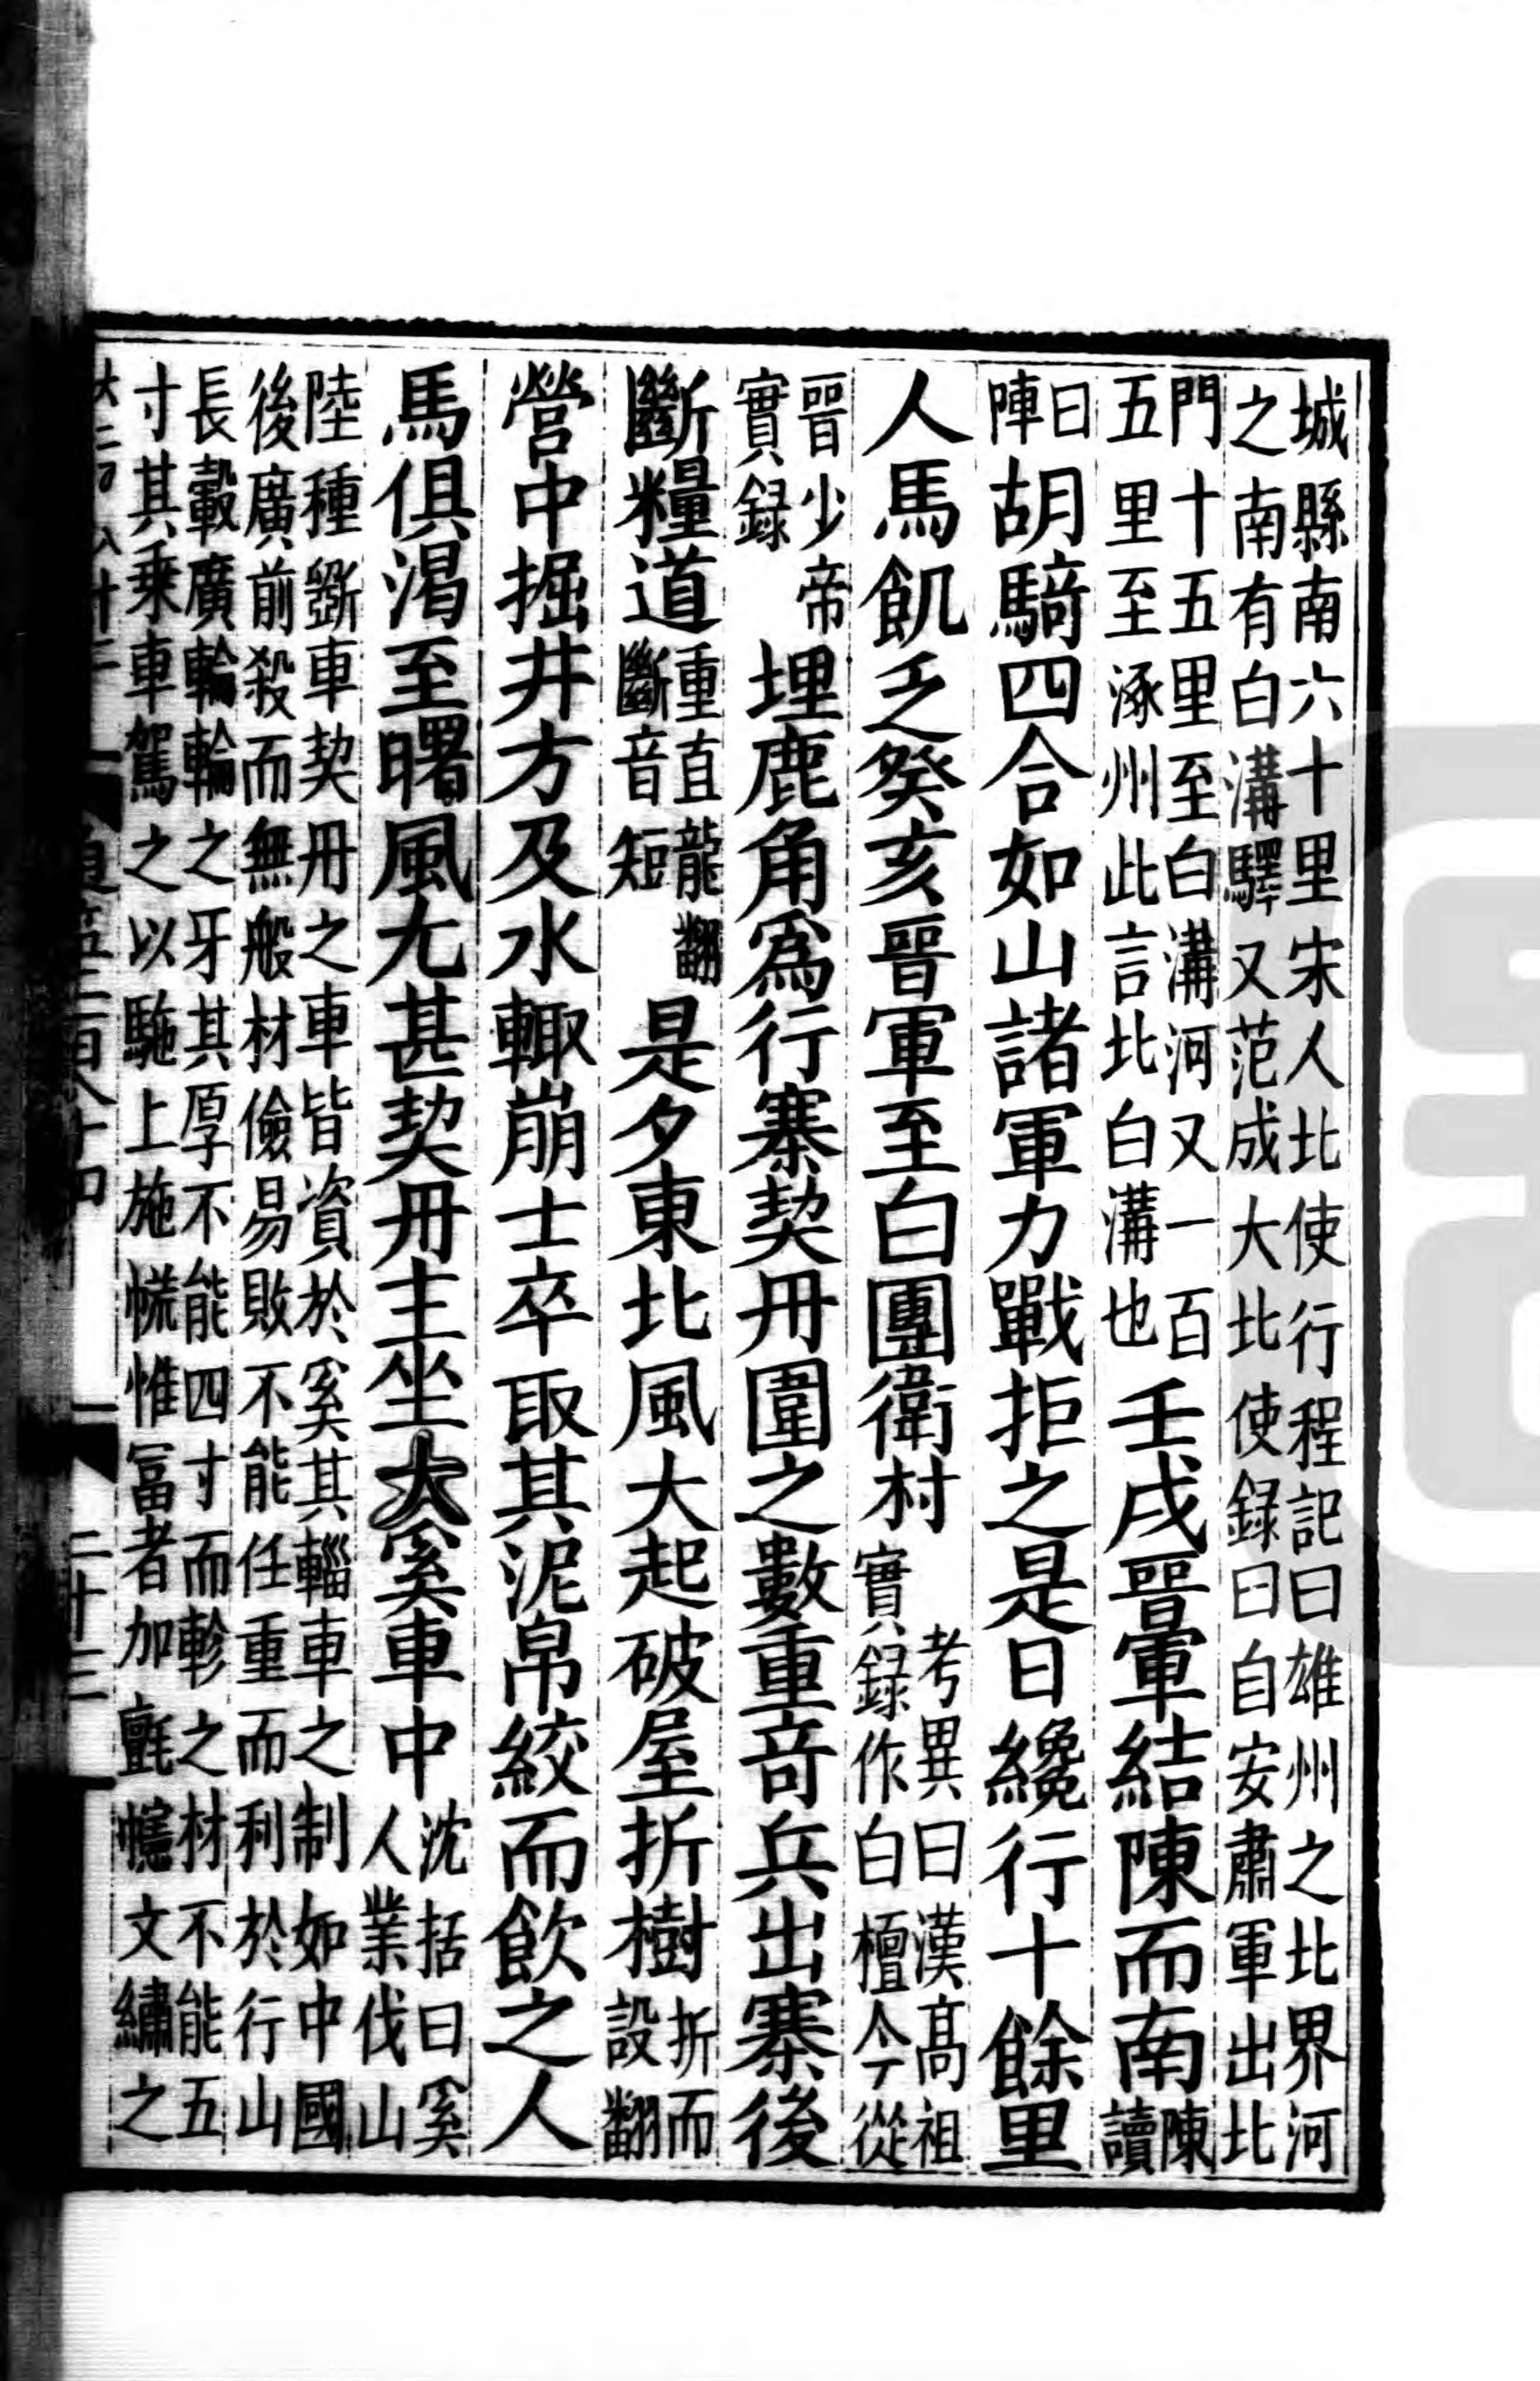 城縣南六十里宋人北使行程記曰雄州之北界河
之南有白溝驛又范成大北使録曰自安肅軍出北
門十五里至白溝河又一百
五里至涿州此言北白溝也
壬戌晉軍結陳而南
陳
讀
曰
陣
胡騎四合如山諸軍力戰拒之是日纔行十餘里
人馬飢乏癸亥晉軍至白團衛村
考異曰漢高祖
實録作白檀今從
晉少帝
實録
埋鹿角爲行寨契丹圍之數重竒兵出寨後
斷糧道
重直龍翻
斷音短
是夕東北風大起破屋折樹
折而
設翻
營中掘井方及水輙崩士卒取其泥帛絞而飲之人
馬俱渴至曙風尤甚契丹主坐大奚車中
沈括曰奚
人業伐山
陸種斲車契丹之車皆資於奚其輜車之制如中國
後廣前殺而無般材儉易敗不能任重而利於行山
長轂廣輪輪之牙其厚不能四寸而軫之材不能五
寸其乗車駕之以駞上施幌惟冨者加氈幰文繡之
二十三